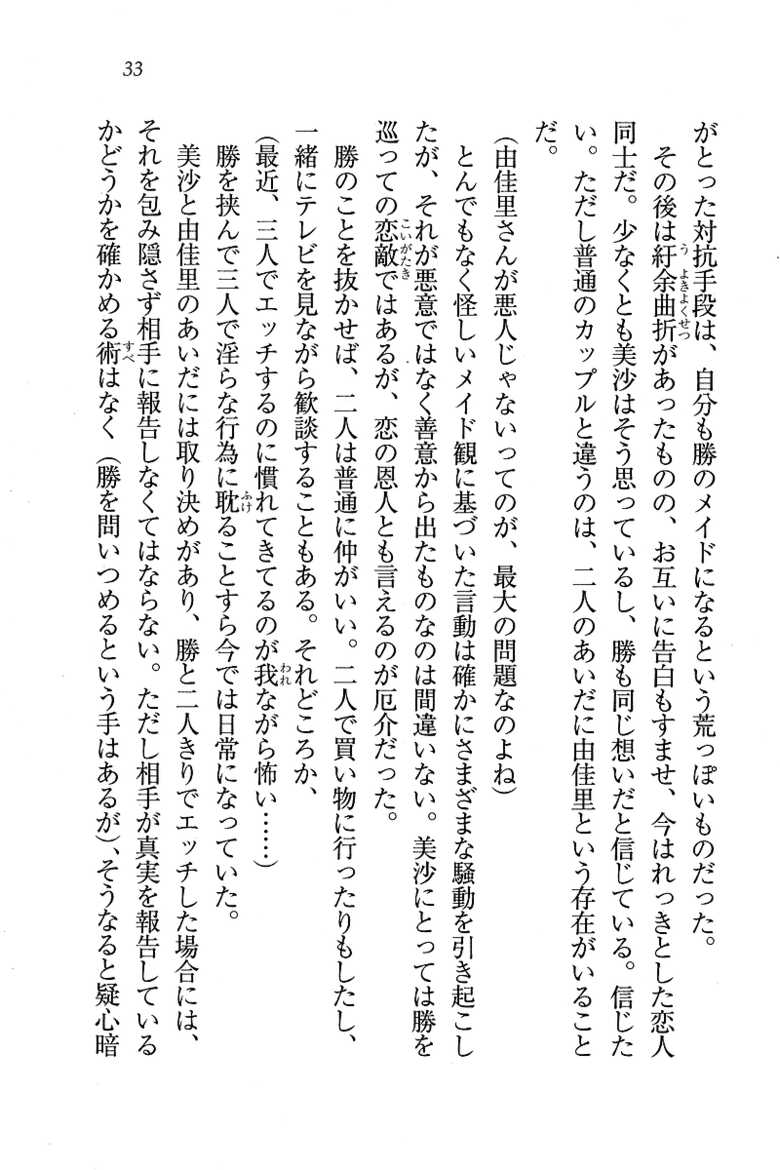 33
がとった対抗手段は、自分も勝のメイドになるという荒っぽいものだった。
その後は紆余曲折があったものの、お互いに告白もすませ、今はれっきとした恋人
同士だ。少なくとも美沙はそう思っているし、勝も同じ想いだと信じている。信じた
い。ただし普通のカップルと違うのは、二人のあいだに由佳里という存在がいること
だ。
（由佳里さんが悪人じゃないってのが、最大の問題なのよね）
とんでもなく怪しいメイド観に基づいた言動は確かにさまざまな騒動を引き起こし
たが、それが悪意ではなく善意から出たものなのは間違いない。美沙にとっては勝を
巡っての恋敵ではあるが、恋の恩人とも言えるのが厄介だった。
勝のことを抜かせば、二人は普通に仲がいい。二人で買い物に行ったりもしたし、
一緒にテレビを見ながら歓談することもある。それどころか、
（最近、三人でエッチするのに慣れてきてるのが我ながら怖い……）
勝を挟んで三人で淫らな行為に耽ることすら今では日常になっていた。
美沙と由佳里のあいだには取り決めがあり、勝と二人きりでエッチした場合には、
それを包み隠さず相手に報告しなくてはならない。ただし相手が真実を報告している
かどうかを確かめる術はなく（勝を問いつめるという手はあるが）、そうなると疑心暗